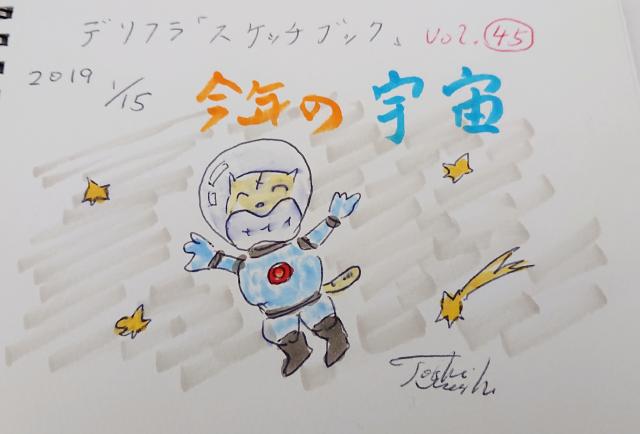 デリフラ「スケッチブック」 VOL.45
2019 1/15
今年の宇宙